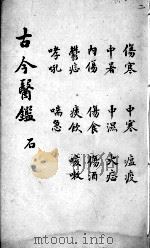 二
傷寒 中寒 瘟疫
中暑 中濕 火症
內傷 傷食 傷酒
鬱症 痰飲 咳嗽
哮吼 喘急
古今醫鑑 石